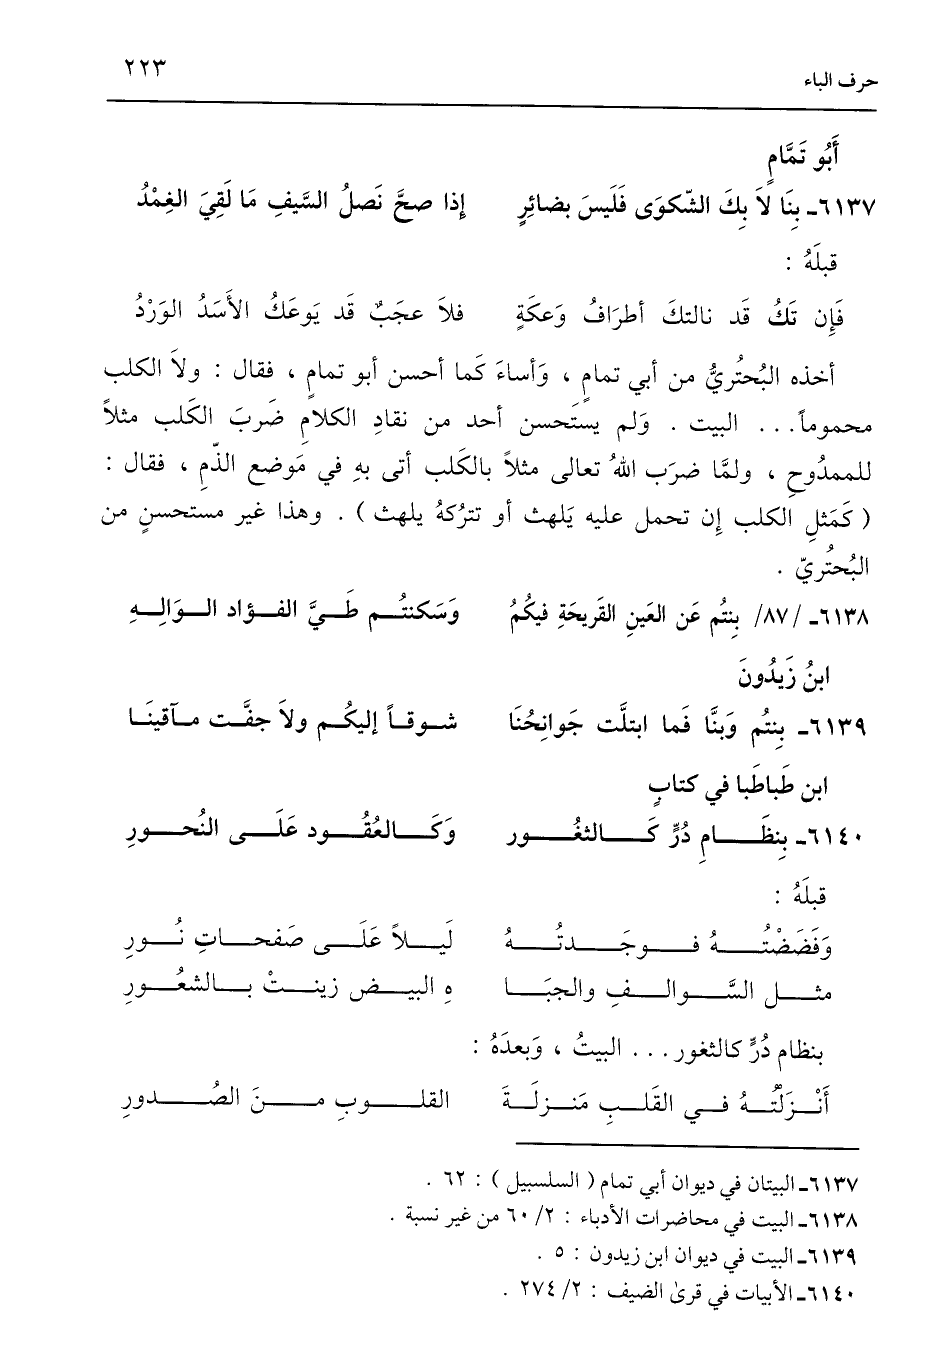 حرف الباء ٢٢٣
أَبُو تَمَّامٍ
٦١٣٧ـ بِنَا لاَ بِكَ الشّكوَى فَلَيسَ بضائرٍ إذا صحَّ نَصلُ السَّيفِ مَا لَقِيَ الغِمْدُ
قبلَهُ :
فَإِن تَكُ قَد نالتكَ أطرَافُ وَعكَةٍ فلاَ عجَبٌ قَد يَوعَكُ الأَسَدُ الوَرْدُ
أخذه البُحتُريُّ من أبي تمامٍ ، وَأساءَ كَما أحسن أبو تمامٍ ، فقال : ولاَ الكلب
محموماً... البيت . وَلم يستَحسن أحد من نقادِ الكلامِ ضَربَ الكَلب مثلاً
للممدُوحِ ، ولمَّا ضرَب اللهُ تعالى مثلاً بالكَلب أتى بهِ في مَوضع الذّمِ ، فقال :
( كَمَثلِ الكلب إِن تحمل عليه يَلهث أو تترُكهُ يلهث ) . وهذا غير مستحسنٍ من
البُحتُريّ .
٦١٣٨ـ /٨٧/ بِنتُم عَن العَينِ القَريحَةِ فيكُمُ وَسَكنتُـم طَـيَّ الفـؤاد الـوَالِـهِ
ابنُ زَيدُونَ
٦١٣٩ـ بِنتُم وَبنَّا فَما ابتلَّت جَوانِحُنَا شوقـاً إليكُـم ولاَ جفَّـت مـآقينَـا
ابن طَباطَبا في كتابٍ
٦١٤٠ـ بِنِظَـامِ دُرٍّ كَـالثغُـور وَكَـالعُقُـود عَلَـى النُحـورِ
قبلَهُ :
وَفَضَضْتُـهُ فـوجَـدتُـهُ لَيـلاً عَلَـى صَفحـاتِ نُـورِ
مثـل السَّـوالـفِ والجبَـا هِ البيـض زينـتْ بـالشعُـورِ
بنظام دُرٍّ كالثغور... البيتُ ، وَبعدَهُ :
أَنْـزَلْتُـهُ فـي القَلـبِ مَنـزلَـةَ القلـوبِ مـنَ الصُـدورِ
٦١٣٧ـ البيتان في ديوان أبي تمام ( السلسبيل ) : ٦٢ .
٦١٣٨ـ البيت في محاضرات الأدباء : ٢/ ٦٠ من غير نسبة .
٦١٣٩ـ البيت في ديوان ابن زيدون : ٥ .
٦١٤٠ـ الأبيات في قرىٰ الضيف : ٢/ ٢٧٤ .